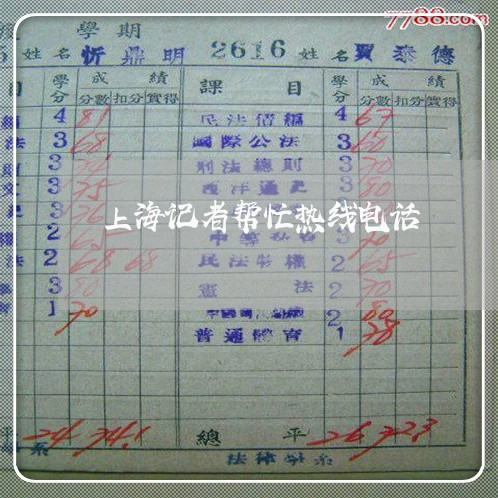 7788.com
學期
姓名 忻鼎明 2616 姓名 賈泰德
目 學分 成績 課目 學分 成績
分數 扣分 實得 分數 扣分 實得
4 81 民法債編 4 67
法 3 68 國際公法 3 60
3 刑法總則 3 70
3 75 西洋通史 3 80
3 76
上海记者帮忙热线电话
權 2 65 3 70
法 2 68 68 民法物權 2 65
3 80 憲法 2 70
1 70 2 80
普通體育 1 78
平 24 74.1 總平 26 72.3
系 法律學系